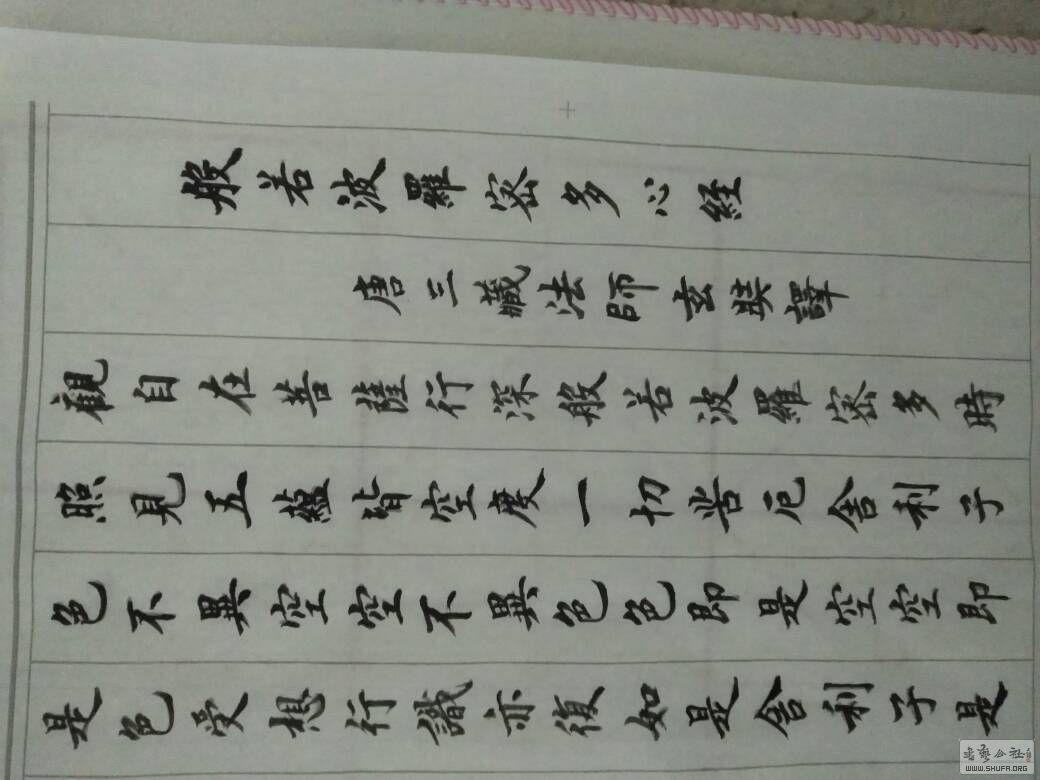 般若波羅密多心経
唐三藏法師玄奘譯
觀自在菩薩行深般若波羅密多時
照見五蘊皆空度一切苦厄舍利子
色不異空空不異色色即是空空即
是色受想行識亦復如是舍利子是
書藝公社
WWW.SHUFA.ORG